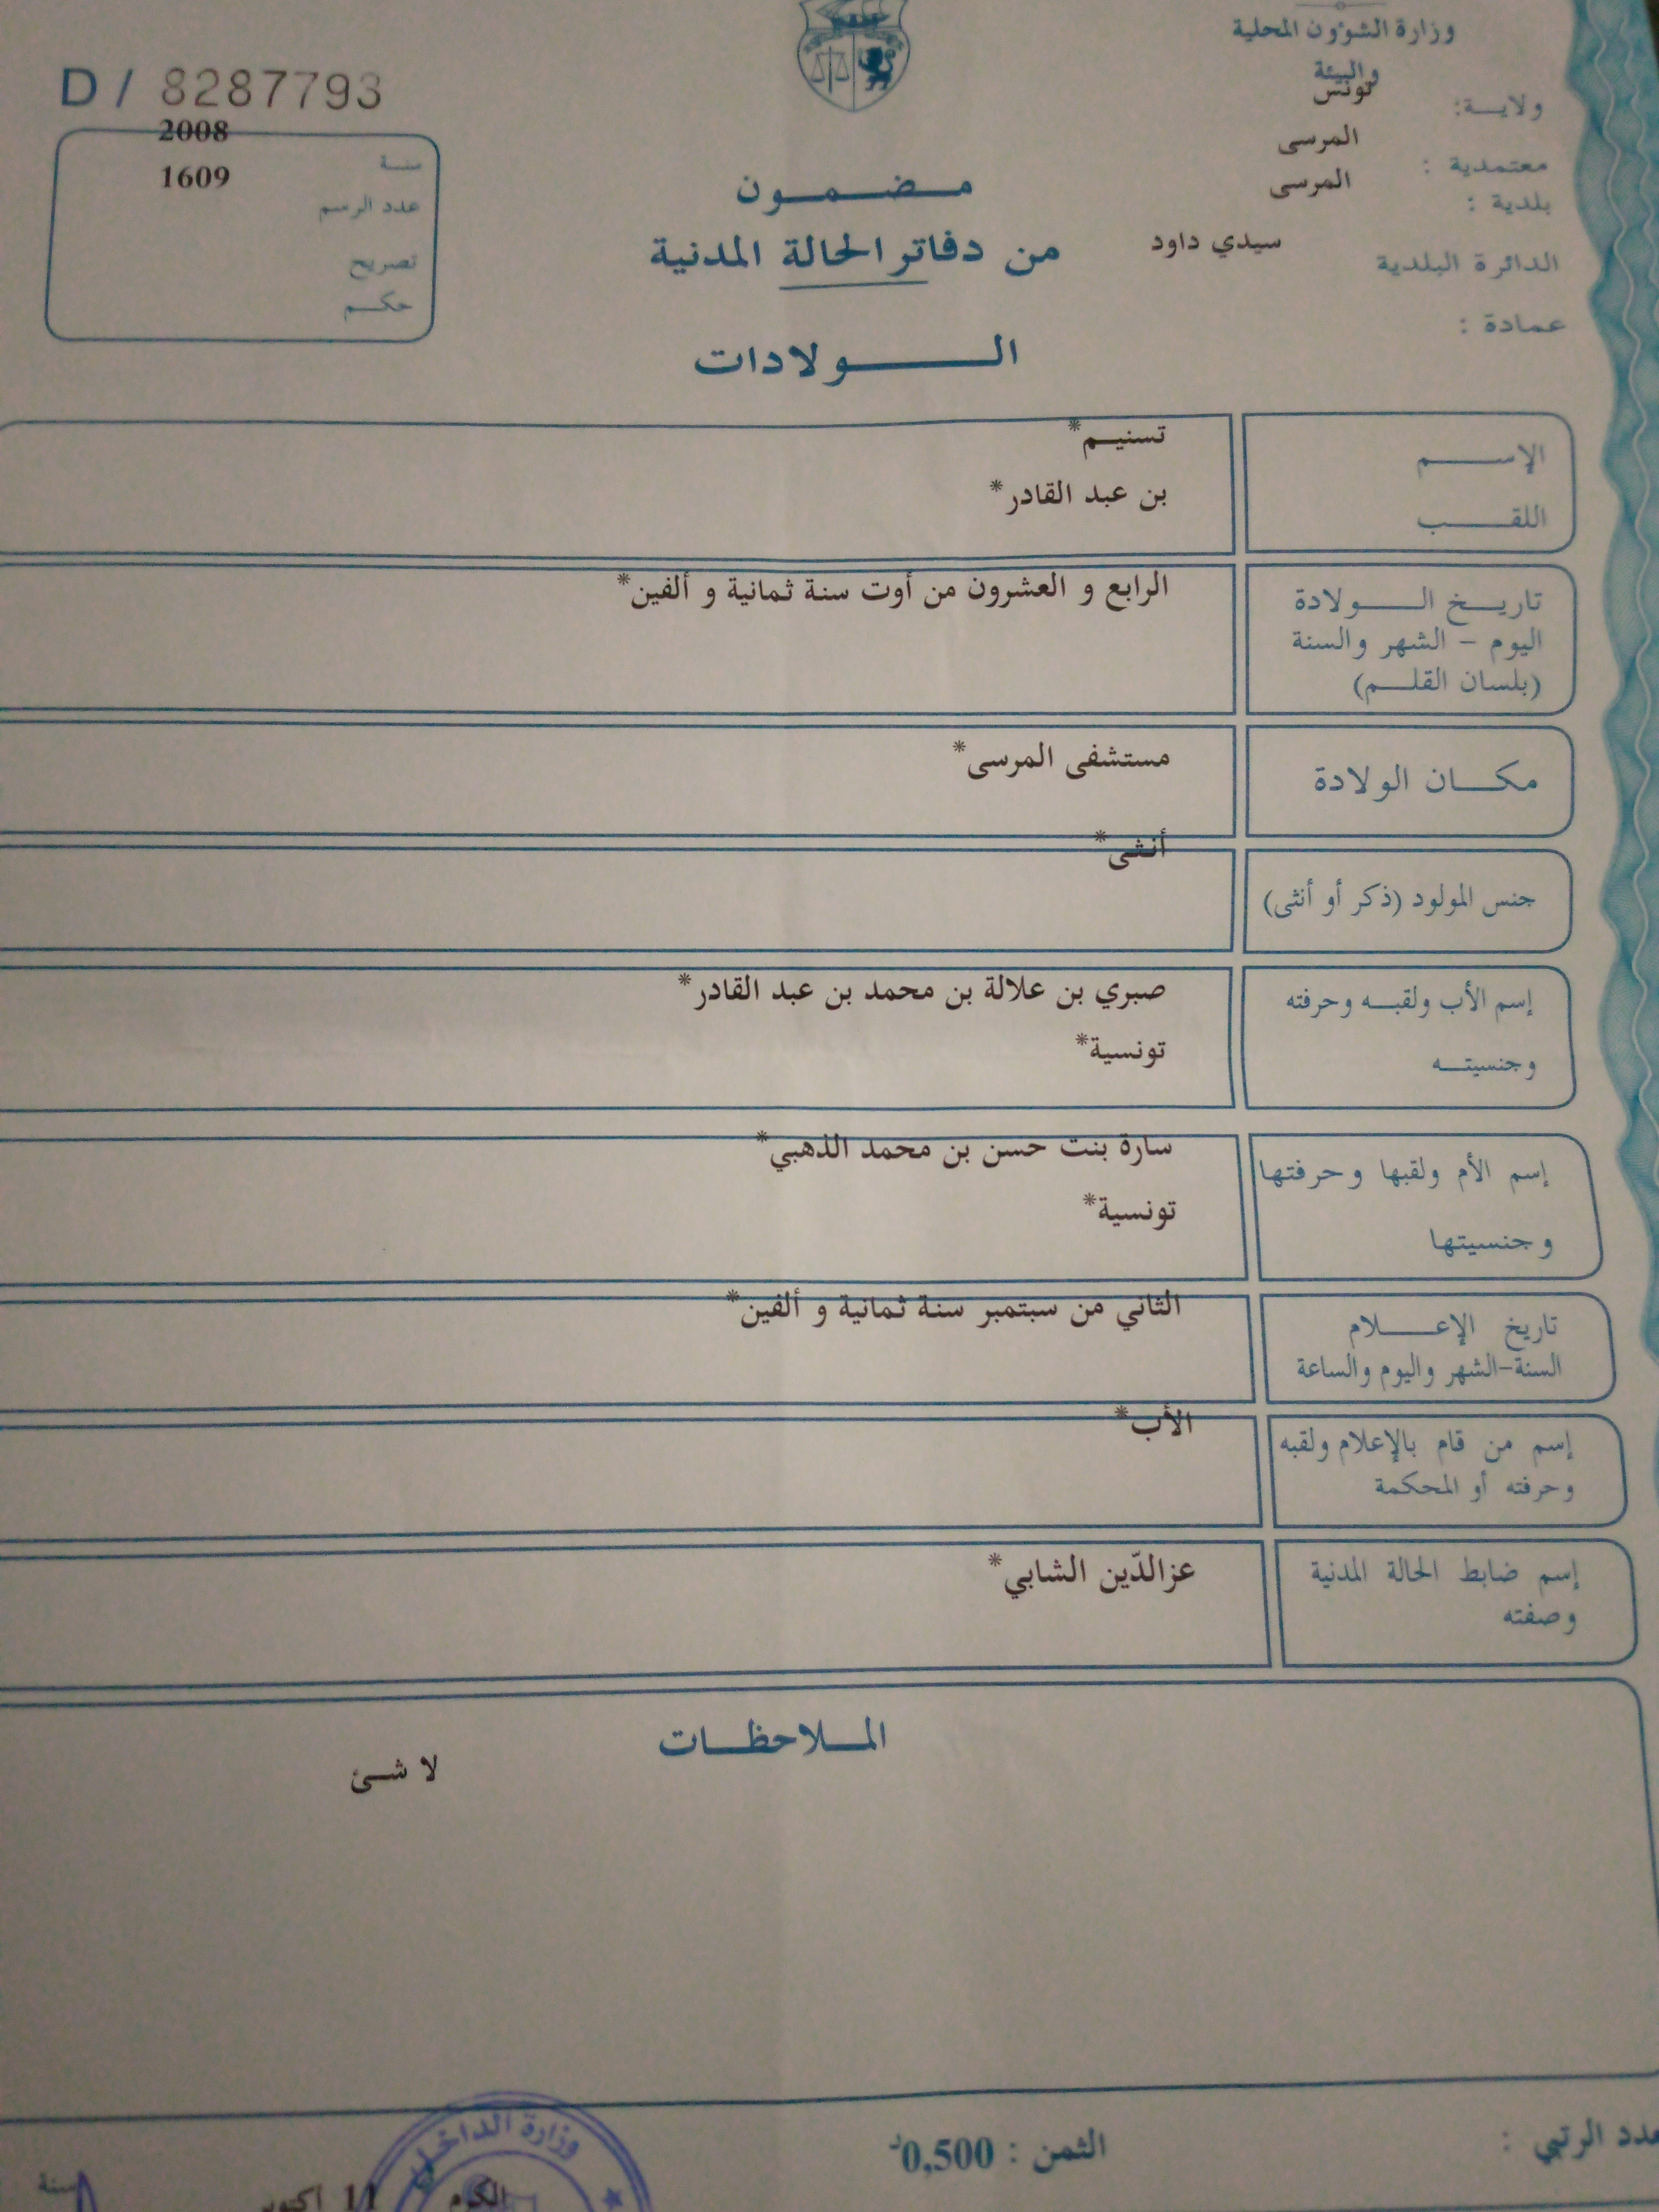 وزارة الشؤون المحلية
والبيئة
ولاية: تونس
معتمدية : المرسى
بلدية : المرسى
الدائرة البلدية سيدي داود
عمادة :
D / 8287793
سنة 2008
عدد الرسم 1609
تصريح
حكم
مضمون
من دفاتر الحالة المدنية
الولادات
الإسم تسنيم*
اللقب بن عبد القادر*
تاريخ الولادة الرابع و العشرون من أوت سنة ثمانية و ألفين*
اليوم – الشهر والسنة
(بلسان القلم)
مكان الولادة مستشفى المرسى*
جنس المولود (ذكر أو أنثى) أنثى*
إسم الأب ولقبه وحرفته صبري بن علالة بن محمد بن عبد القادر*
وجنسيته تونسية*
إسم الأم ولقبها وحرفتها سارة بنت حسن بن محمد الذهبي*
وجنسيتها تونسية*
تاريخ الإعلام الثاني من سبتمبر سنة ثمانية و ألفين*
السنة-الشهر واليوم والساعة
إسم من قام بالإعلام ولقبه الأب*
وحرفته أو المحكمة
إسم ضابط الحالة المدنية عزالدّين الشابي*
وصفته
الملاحظات
لا شئ
عدد الرتبي :
الثمن : 0,500د
وزارة الداخل
الكرم
11 اكتوبر
سنة